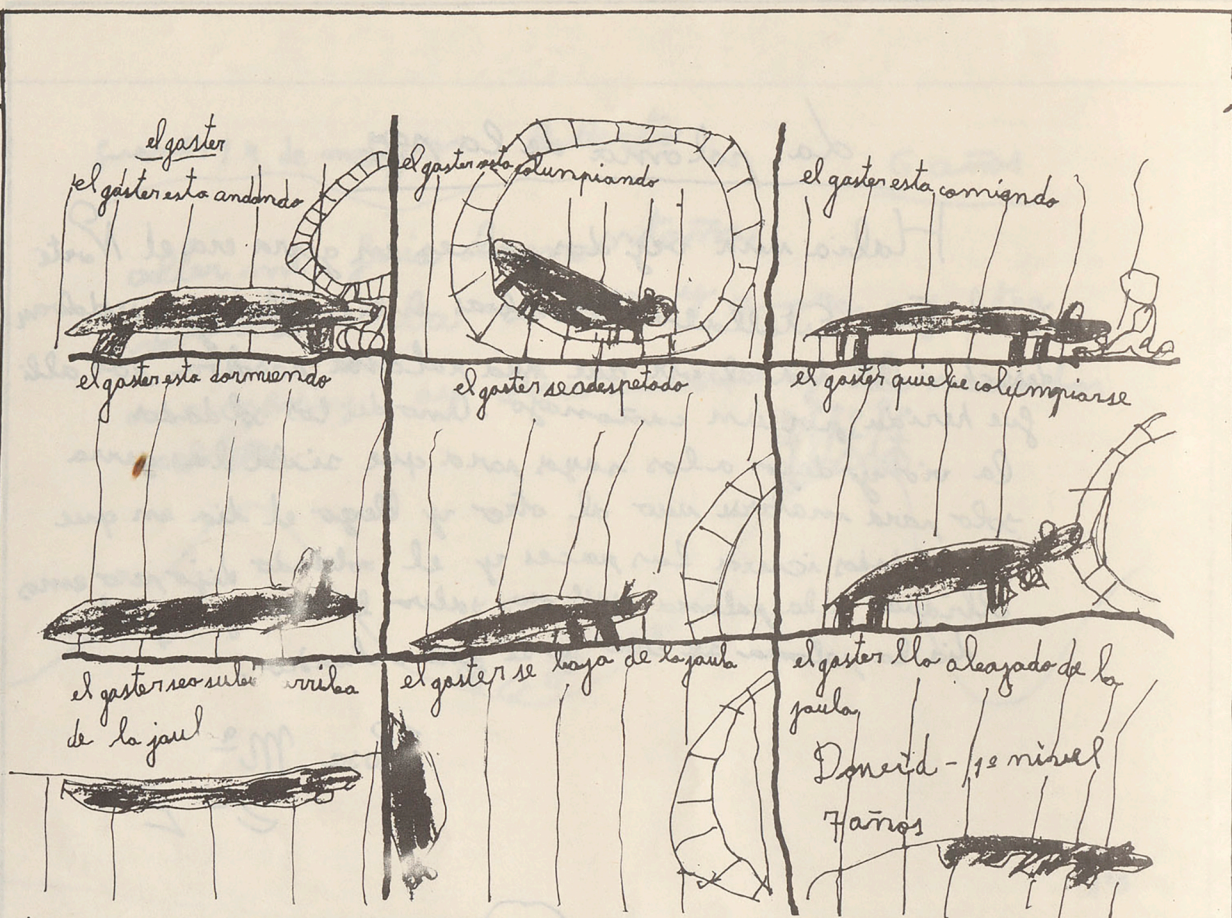 el gaster
el gaster esta andando
el gaster esta columpiando
el gaster esta comiendo
el gaster esta dormiendo
el gaster seadespetado
el gaster quiebe columpiarse
el gaster seasubi rriba
de la jaul
el gaster se baja de la jaula
el gaster lla abajado de la
jaula
David - 1º nivel
7 años